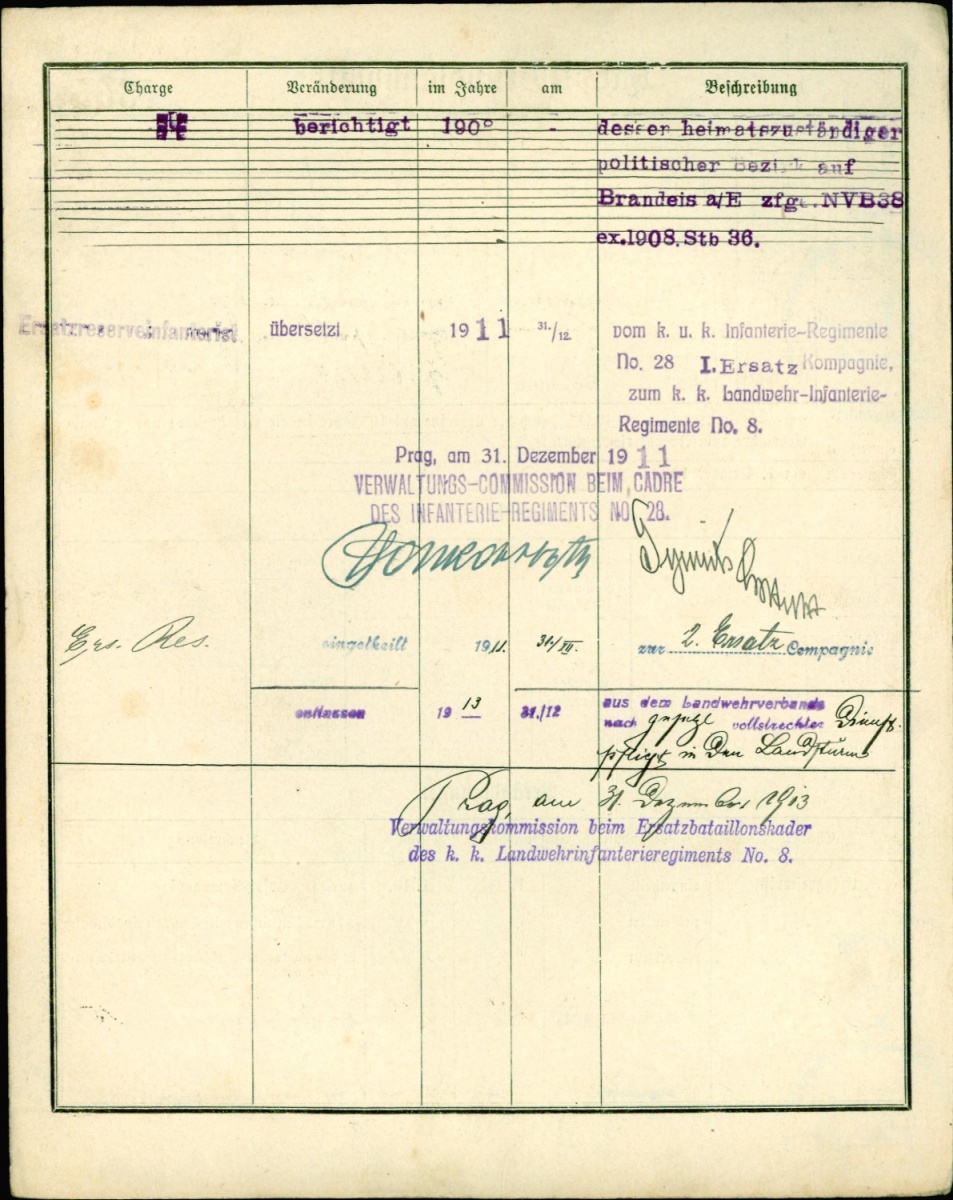 Charge Veränderung im Jahre am Beschreibung
berichtigt 190 - dessen heimatszuständiger
politischer Bezirk auf
Brandeis a/E zfg. NVB38
ex.1908.Stb 36.
Ersatzreserveinfanterist übersetzt 1911 31./12. vom k. u. k. Infanterie-Regimente
No. 28 I. Ersatz Kompagnie,
zum k. k. Landwehr-Infanterie-
Regimente No. 8.
Prag, am 31. Dezember 1911
VERWALTUNGS-COMMISSION BEIM CADRE
DES INFANTERIE-REGIMENTS NO 28.
Ers. Res. eingetheilt 1911. 31./XII. zur 2. Ersatz Compagnie
entlassen 1913 31./12 aus dem Landwehrverbande
nach gesetzl vollstreckter Dienst
pflicht in den Landsturm
Prag, am 31. Dezember 1913
Verwaltungskommission beim Ersatzbataillonskader
des k. k. Landwehrinfanterieregiments No. 8.